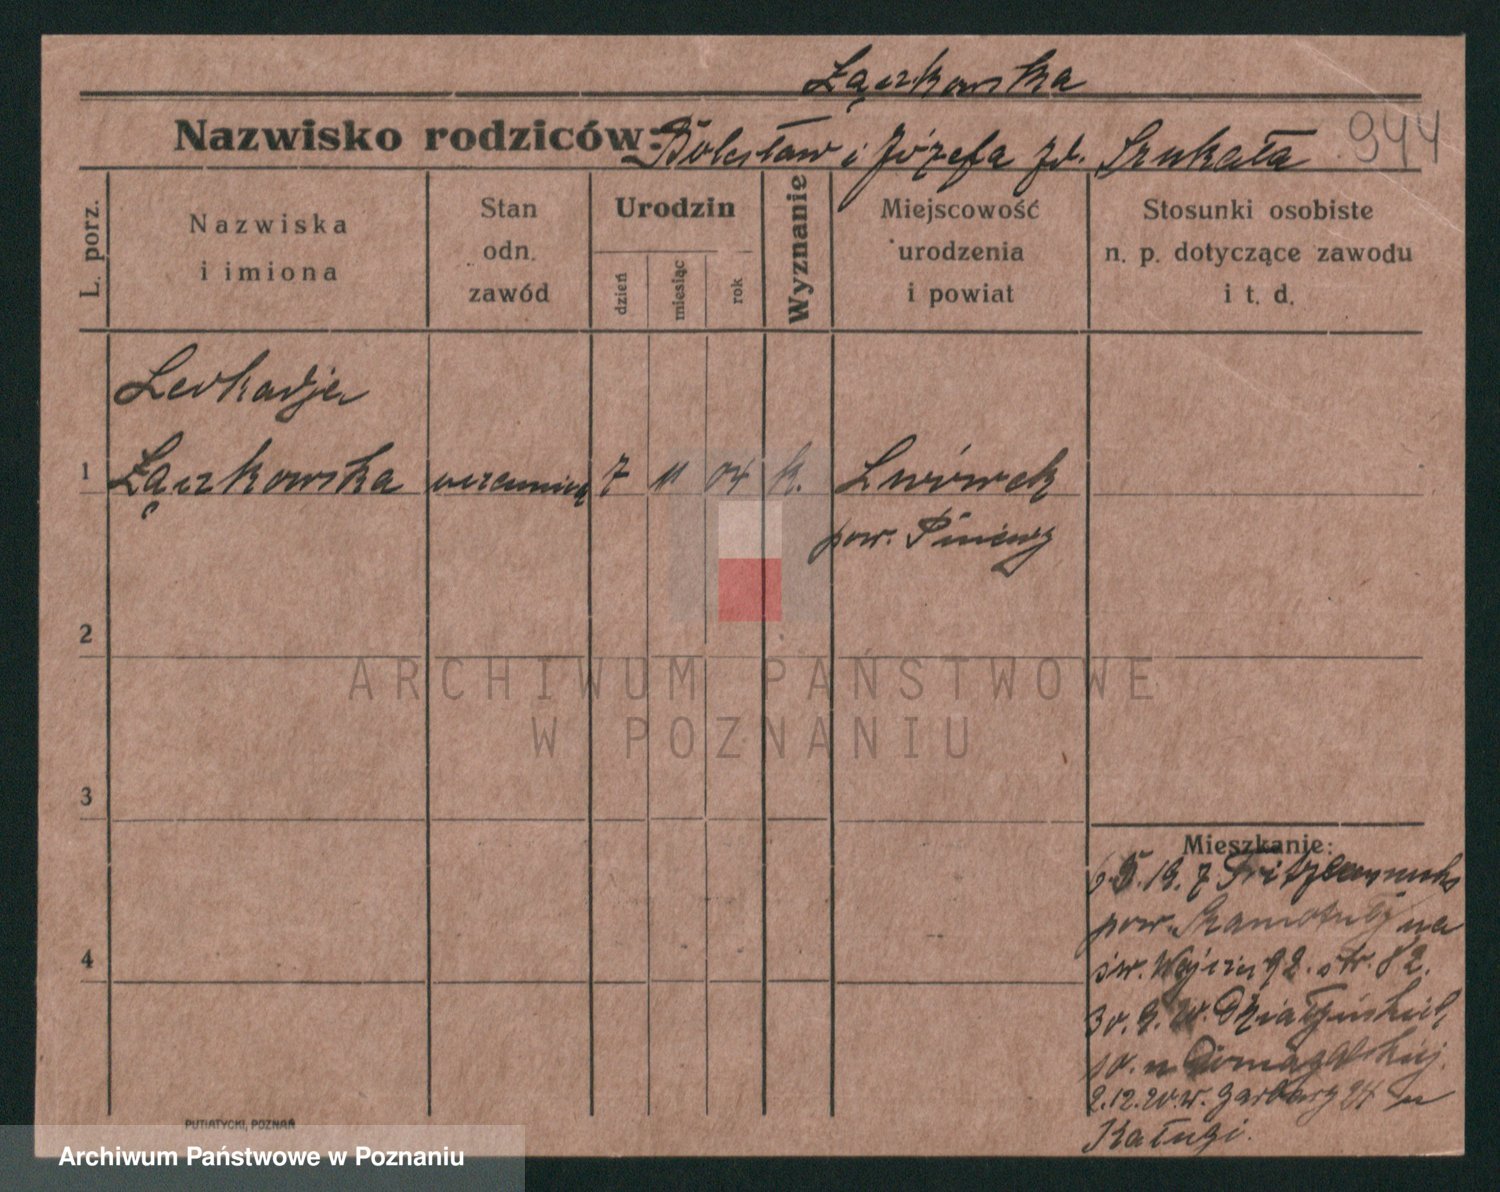 Łączkowska
Nazwisko rodziców: Bolesław i Józefa zd. Szukała 944
L. porz.
Nazwiska
i imiona
Stan
odn.
zawód
Urodzin
dzień
miesiąc
rok
Wyznanie
Miejscowość
urodzenia
i powiat
Stosunki osobiste
n. p. dotyczące zawodu
i t. d.
Leokadja
1 Łączkowska uczennica 7 11 04 k. Lwówek
pow. Pniewy
2
3
4
Mieszkanie:
19. z
pow. Szamotuły na
św. Wojciech 92. str. 82.
30. 9. w. Działyńskich
10. u Domagalskiej.
2.12.20. w. Garbary 24 u
Kaługi.
PUTIATYCKI, POZNAŃ
ARCHIWUM PAŃSTWOWE
W POZNANIU
Archiwum Państwowe w Poznaniu